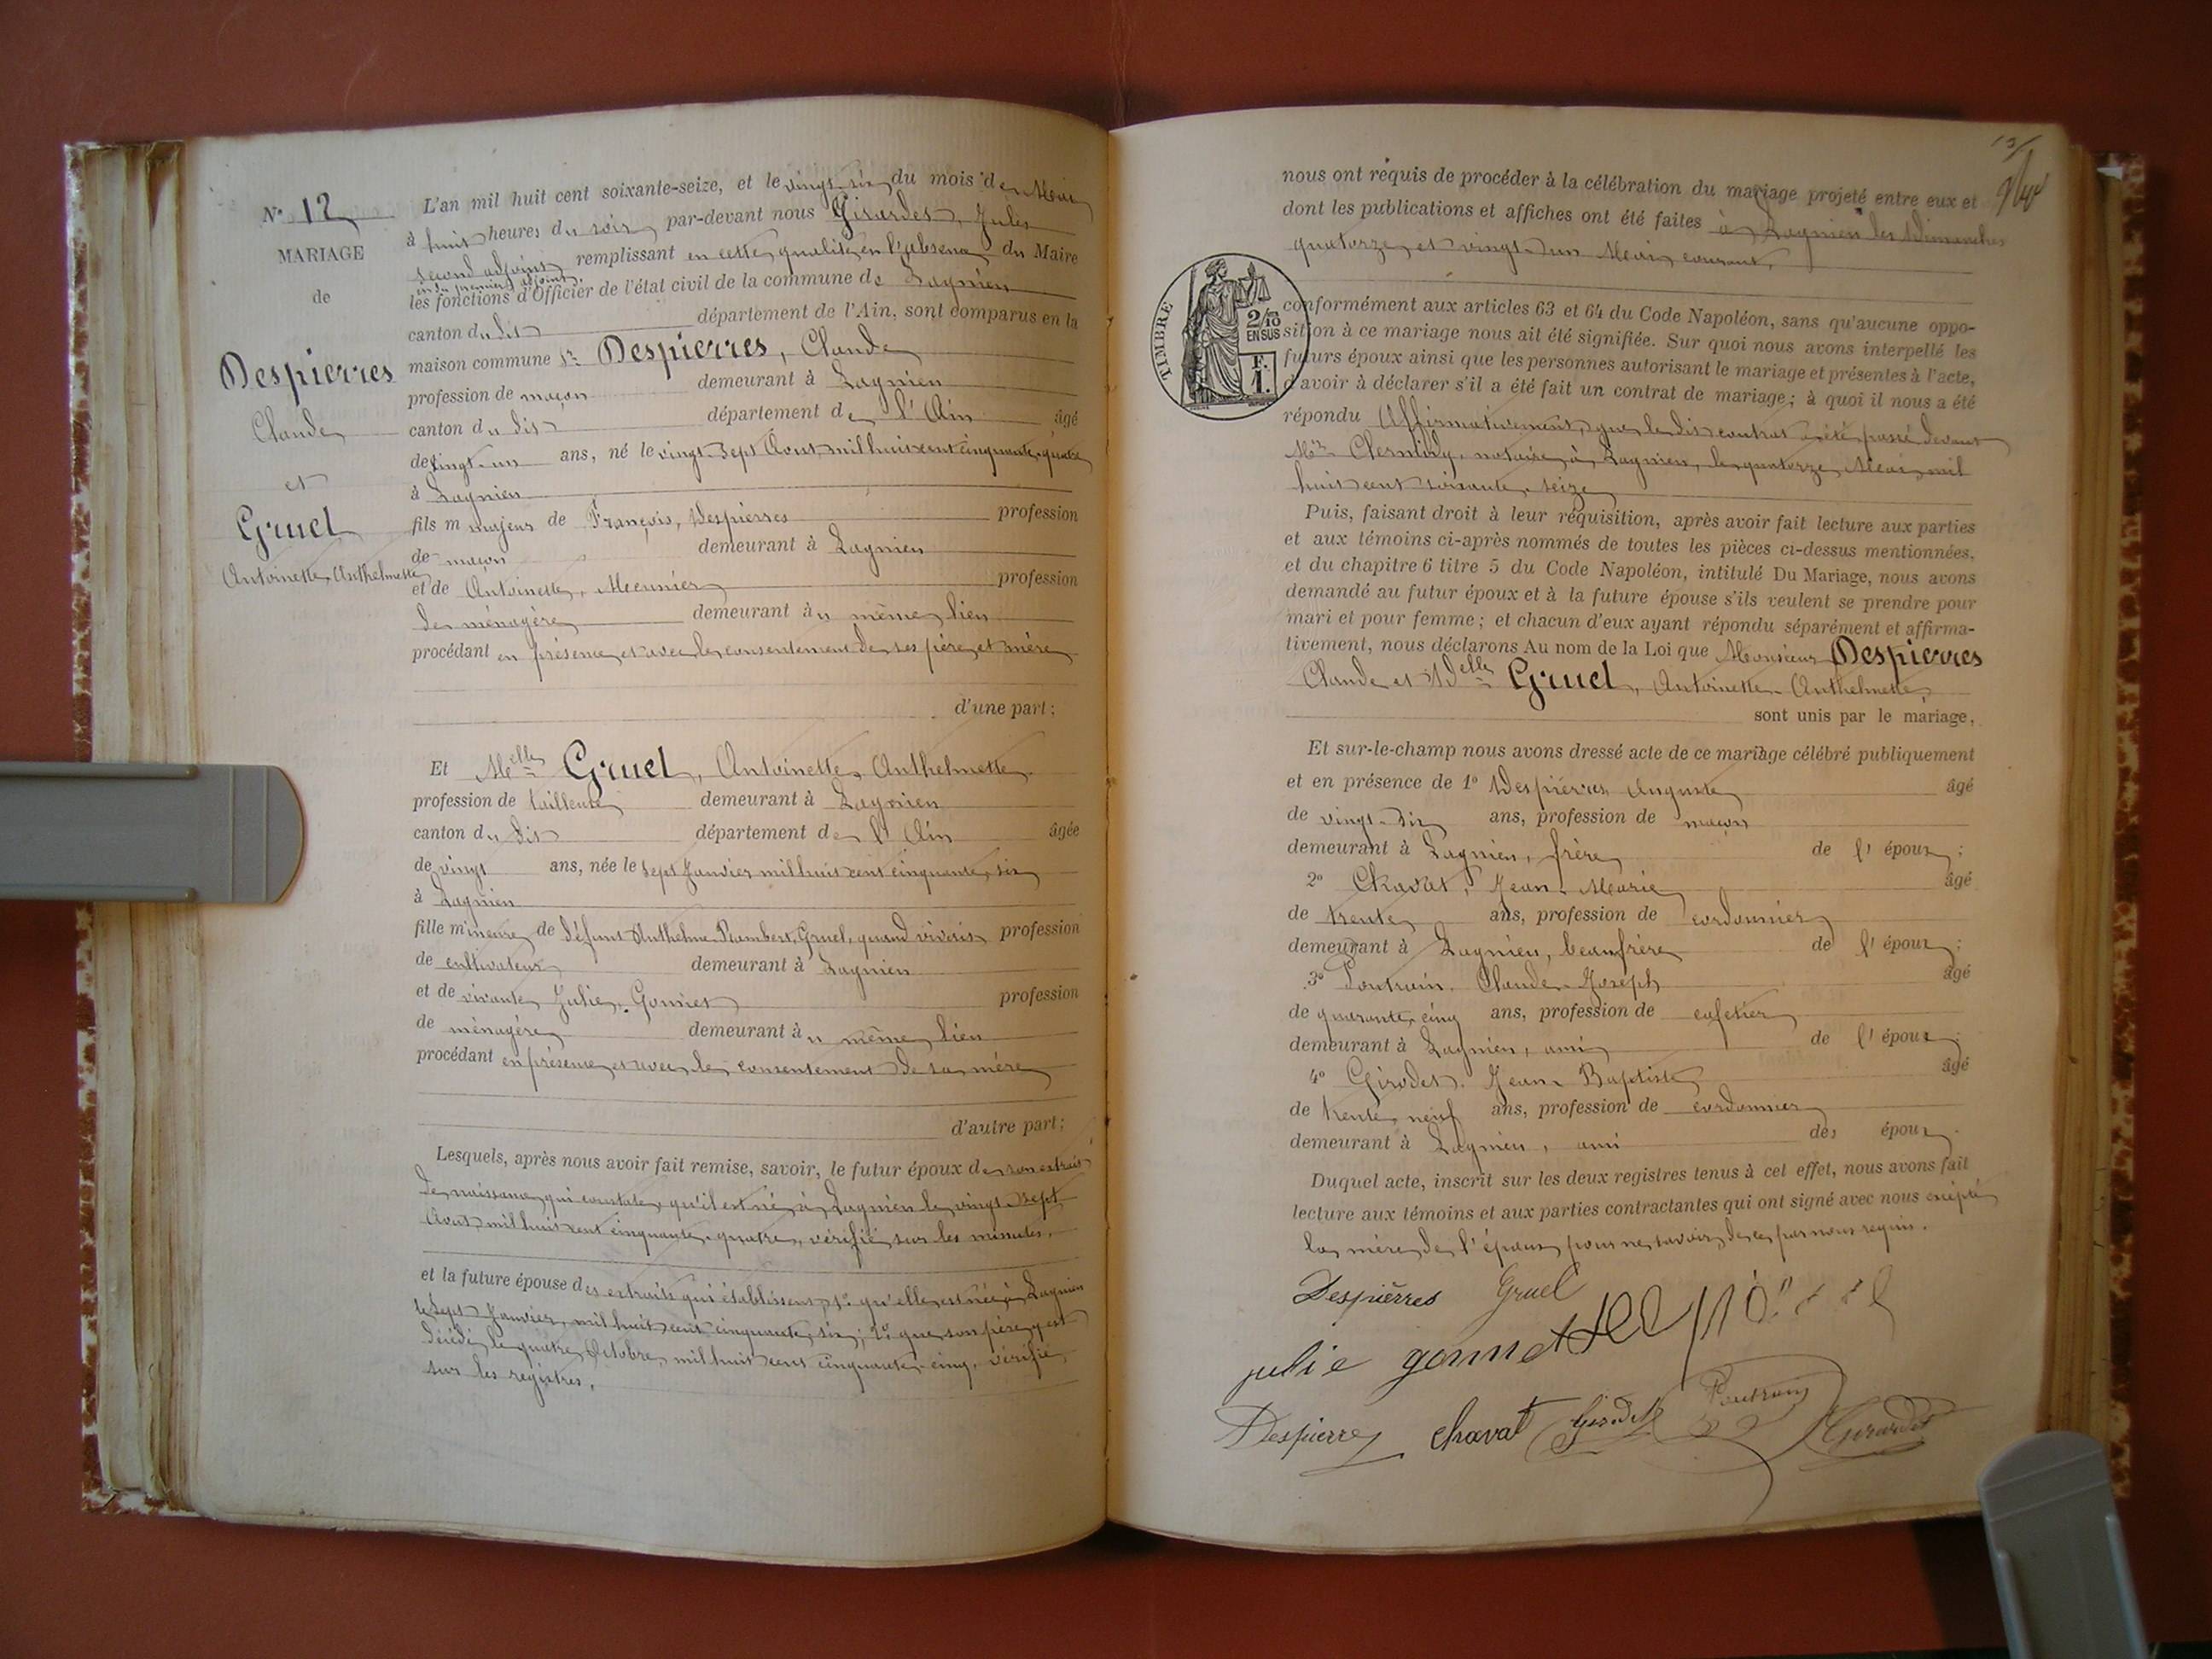 N° 12
MARIAGE
de
Despierres
Claude
et
Gruel
Antoinette Anthelmette
L'an mil huit cent soixante-seize, et le vingt-six du mois de Mai
à huit heures du soir par-devant nous Girardet, Jules
second adjoint remplissant en cette qualité en l'absence du Maire
et du premier adjoint,
les fonctions d'Officier de l'état civil de la commune de Lagnieu
canton du dit département de l'Ain, sont comparus en la
maison commune Sr Despierres, Claude
profession de maçon demeurant à Lagnieu
canton du dit département de l'Ain âgé
de vingt-un ans, né le vingt-sept Aout mil huit cent cinquante-quatre
à Lagnieu
fils majeur de François, Despierres profession
de maçon demeurant à Lagnieu
et de Antoinette, Meunier profession
de ménagère demeurant au même lieu
procédant en présence et avec le consentement de ses père et mère
d'une part;
Et Melle Gruel, Antoinette Anthelmette
profession de tailleuse demeurant à Lagnieu
canton du dit département de l'Ain âgée
de vingt ans, née le sept Janvier mil huit cent cinquante-six
à Lagnieu
fille mineure de défunt Anthelme Rambert, Gruel, quand vivait profession
de cultivateur demeurant à Lagnieu
et de vivante Julie, Gonnet profession
de ménagère demeurant au même lieu
procédant en présence et avec le consentement de sa mère
d'autre part;
Lesquels, après nous avoir fait remise, savoir, le futur époux de son extrait
de naissance qui constate qu'il est né à Lagnieu le vingt-sept
Aout mil huit cent cinquante-quatre, vérifié sur les minutes.
et la future épouse des extraits qui établissent 1° qu'elle est née à Lagnieu
le sept Janvier mil huit cent cinquante-six; 2° que son père y est
décédé le quatre Octobre mil huit cent cinquante-cinq, vérifié
sur les registres.
nous ont requis de procéder à la célébration du mariage projeté entre eux et
dont les publications et affiches ont été faites à Lagnieu les Dimanches
quatorze et vingt-un Mai courant,
TIMBRE
2/10
EN SUS
F.
1.
conformément aux articles 63 et 64 du Code Napoléon, sans qu'aucune oppo-
sition à ce mariage nous ait été signifiée. Sur quoi nous avons interpellé les
futurs époux ainsi que les personnes autorisant le mariage et présentes à l'acte,
d'avoir à déclarer s'il a été fait un contrat de mariage; à quoi il nous a été
répondu Affirmativement, que le dit contrat a été passé devant
Me notaire à Lagnieu, le quatorze Mai mil
huit cent soixante-seize
Puis, faisant droit à leur réquisition, après avoir fait lecture aux parties
et aux témoins ci-après nommés de toutes les pièces ci-dessus mentionnées,
et du chapitre 6 titre 5 du Code Napoléon, intitulé Du Mariage, nous avons
demandé au futur époux et à la future épouse s'ils veulent se prendre pour
mari et pour femme; et chacun d'eux ayant répondu séparément et affirma-
tivement, nous déclarons Au nom de la Loi que Monsieur Despierres
Claude et Delle Gruel, Antoinette-Anthelmette,
sont unis par le mariage,
Et sur-le-champ nous avons dressé acte de ce mariage célébré publiquement
et en présence de 1° Despierres Auguste âgé
de vingt-six ans, profession de maçon
demeurant à Lagnieu, frère de l'époux;
2° Chavat, Jean-Marie âgé
de trente ans, profession de cordonnier
demeurant à Lagnieu, beau-frère de l'époux;
3° Poutrain Claude-Joseph âgé
de quarante-cinq ans, profession de cafetier
demeurant à Lagnieu, ami de l'époux;
4° Girodet Jean-Baptiste âgé
de trente-neuf ans, profession de cordonnier
demeurant à Lagnieu, ami des époux.
Duquel acte, inscrit sur les deux registres tenus à cet effet, nous avons fait
lecture aux témoins et aux parties contractantes qui ont signé avec nous excepté
la mère de l'époux pour ne savoir, de ce par nous requis.
Despierres Gruel
julie gonnet
Despierre chavat Girodet Poutrain Girardet